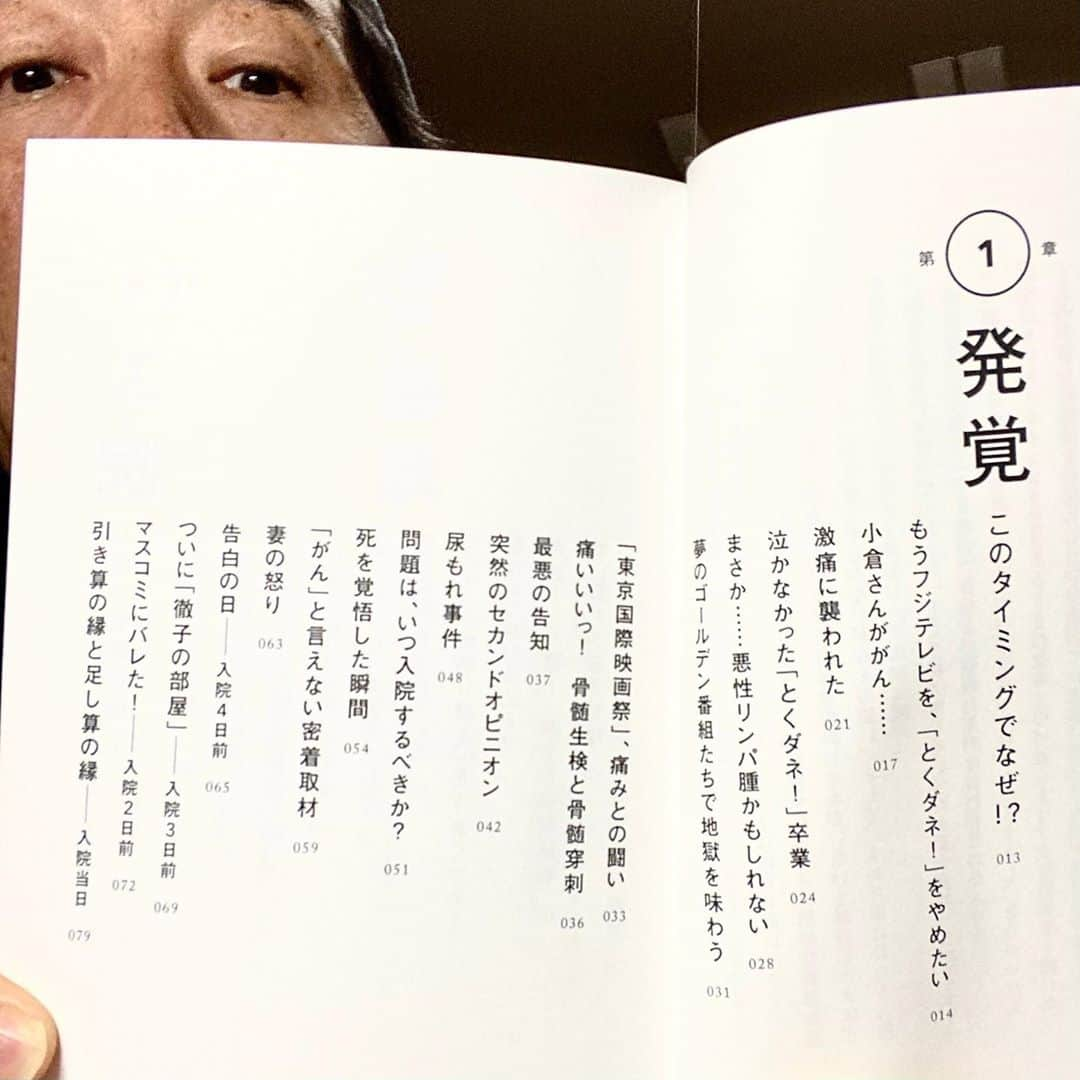 第1章
発覚 このタイミングでなぜ!? 013
もうフジテレビを、「とくダネ!」をやめたい 014
小倉さんががん…… 017
激痛に襲われた 021
泣かなかった「とくダネ!」卒業 024
まさか……悪性リンパ腫かもしれない 028
夢のゴールデン番組たちで地獄を味わう 031
「東京国際映画祭」、痛みとの闘い 033
痛いいいっ! 骨髄生検と骨髄穿刺 036
最悪の告知 037
突然のセカンドオピニオン 042
尿もれ事件 048
問題は、いつ入院するべきか? 051
死を覚悟した瞬間 054
「がん」と言えない密着取材 059
妻の怒り 063
告白の日——入院4日前 065
ついに「徹子の部屋」——入院3日前 069
マスコミにバレた!——入院2日前 072
引き算の縁と足し算の縁——入院当日 079